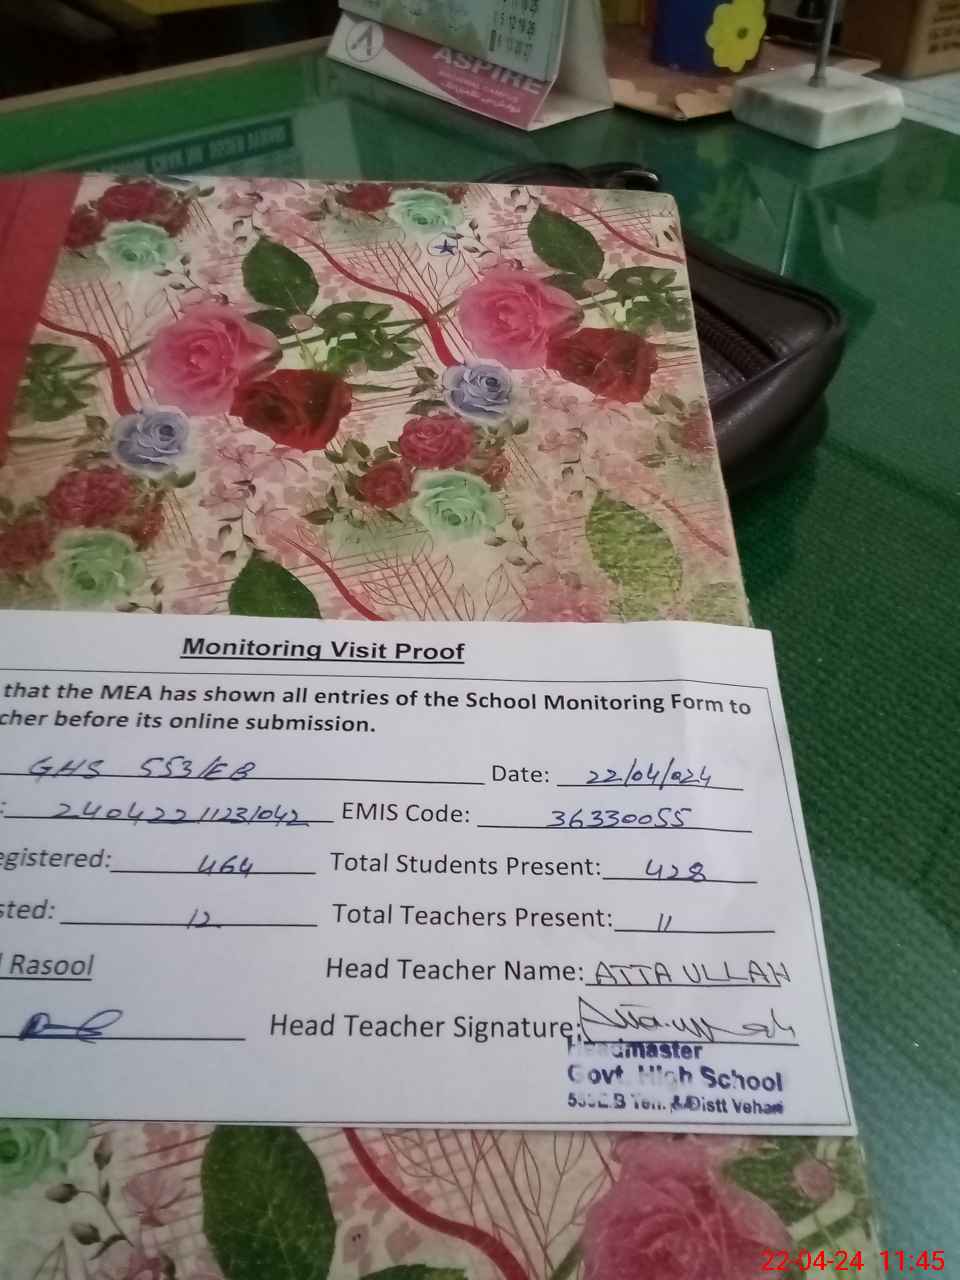 ASPIRE
Monitoring Visit Proof
that the MEA has shown all entries of the School Monitoring Form to
cher before its online submission.
GHS 553/EB Date: 22/04/024
: 240422 1123/042 EMIS Code: 36330055
egistered: 464 Total Students Present: 428
sted: 12 Total Teachers Present: 11
l Rasool Head Teacher Name: ATTA ULLAH
Head Teacher Signature:
Headmaster
Govt. High School
& Distt Vehari
22-04-24 11:45